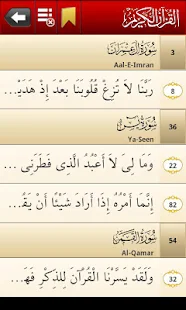 القرآن الكريم
3 سورة آل عمران
Aal-E-Imran
رَبَّنَا لَا تُزِغْ قُلُوبَنَا بَعْدَ إِذْ هَدَيْ... 8
36 سورة يس
Ya-Seen
وَمَا لِيَ لَا أَعْبُدُ الَّذِي فَطَرَنِي ... 22
إِنَّمَا أَمْرُهُ إِذَا أَرَادَ شَيْئًا أَن يَقُ... 82
54 سورة القمر
Al-Qamar
وَلَقَدْ يَسَّرْنَا الْقُرْآنَ لِلذِّكْرِ فَهَ... 32